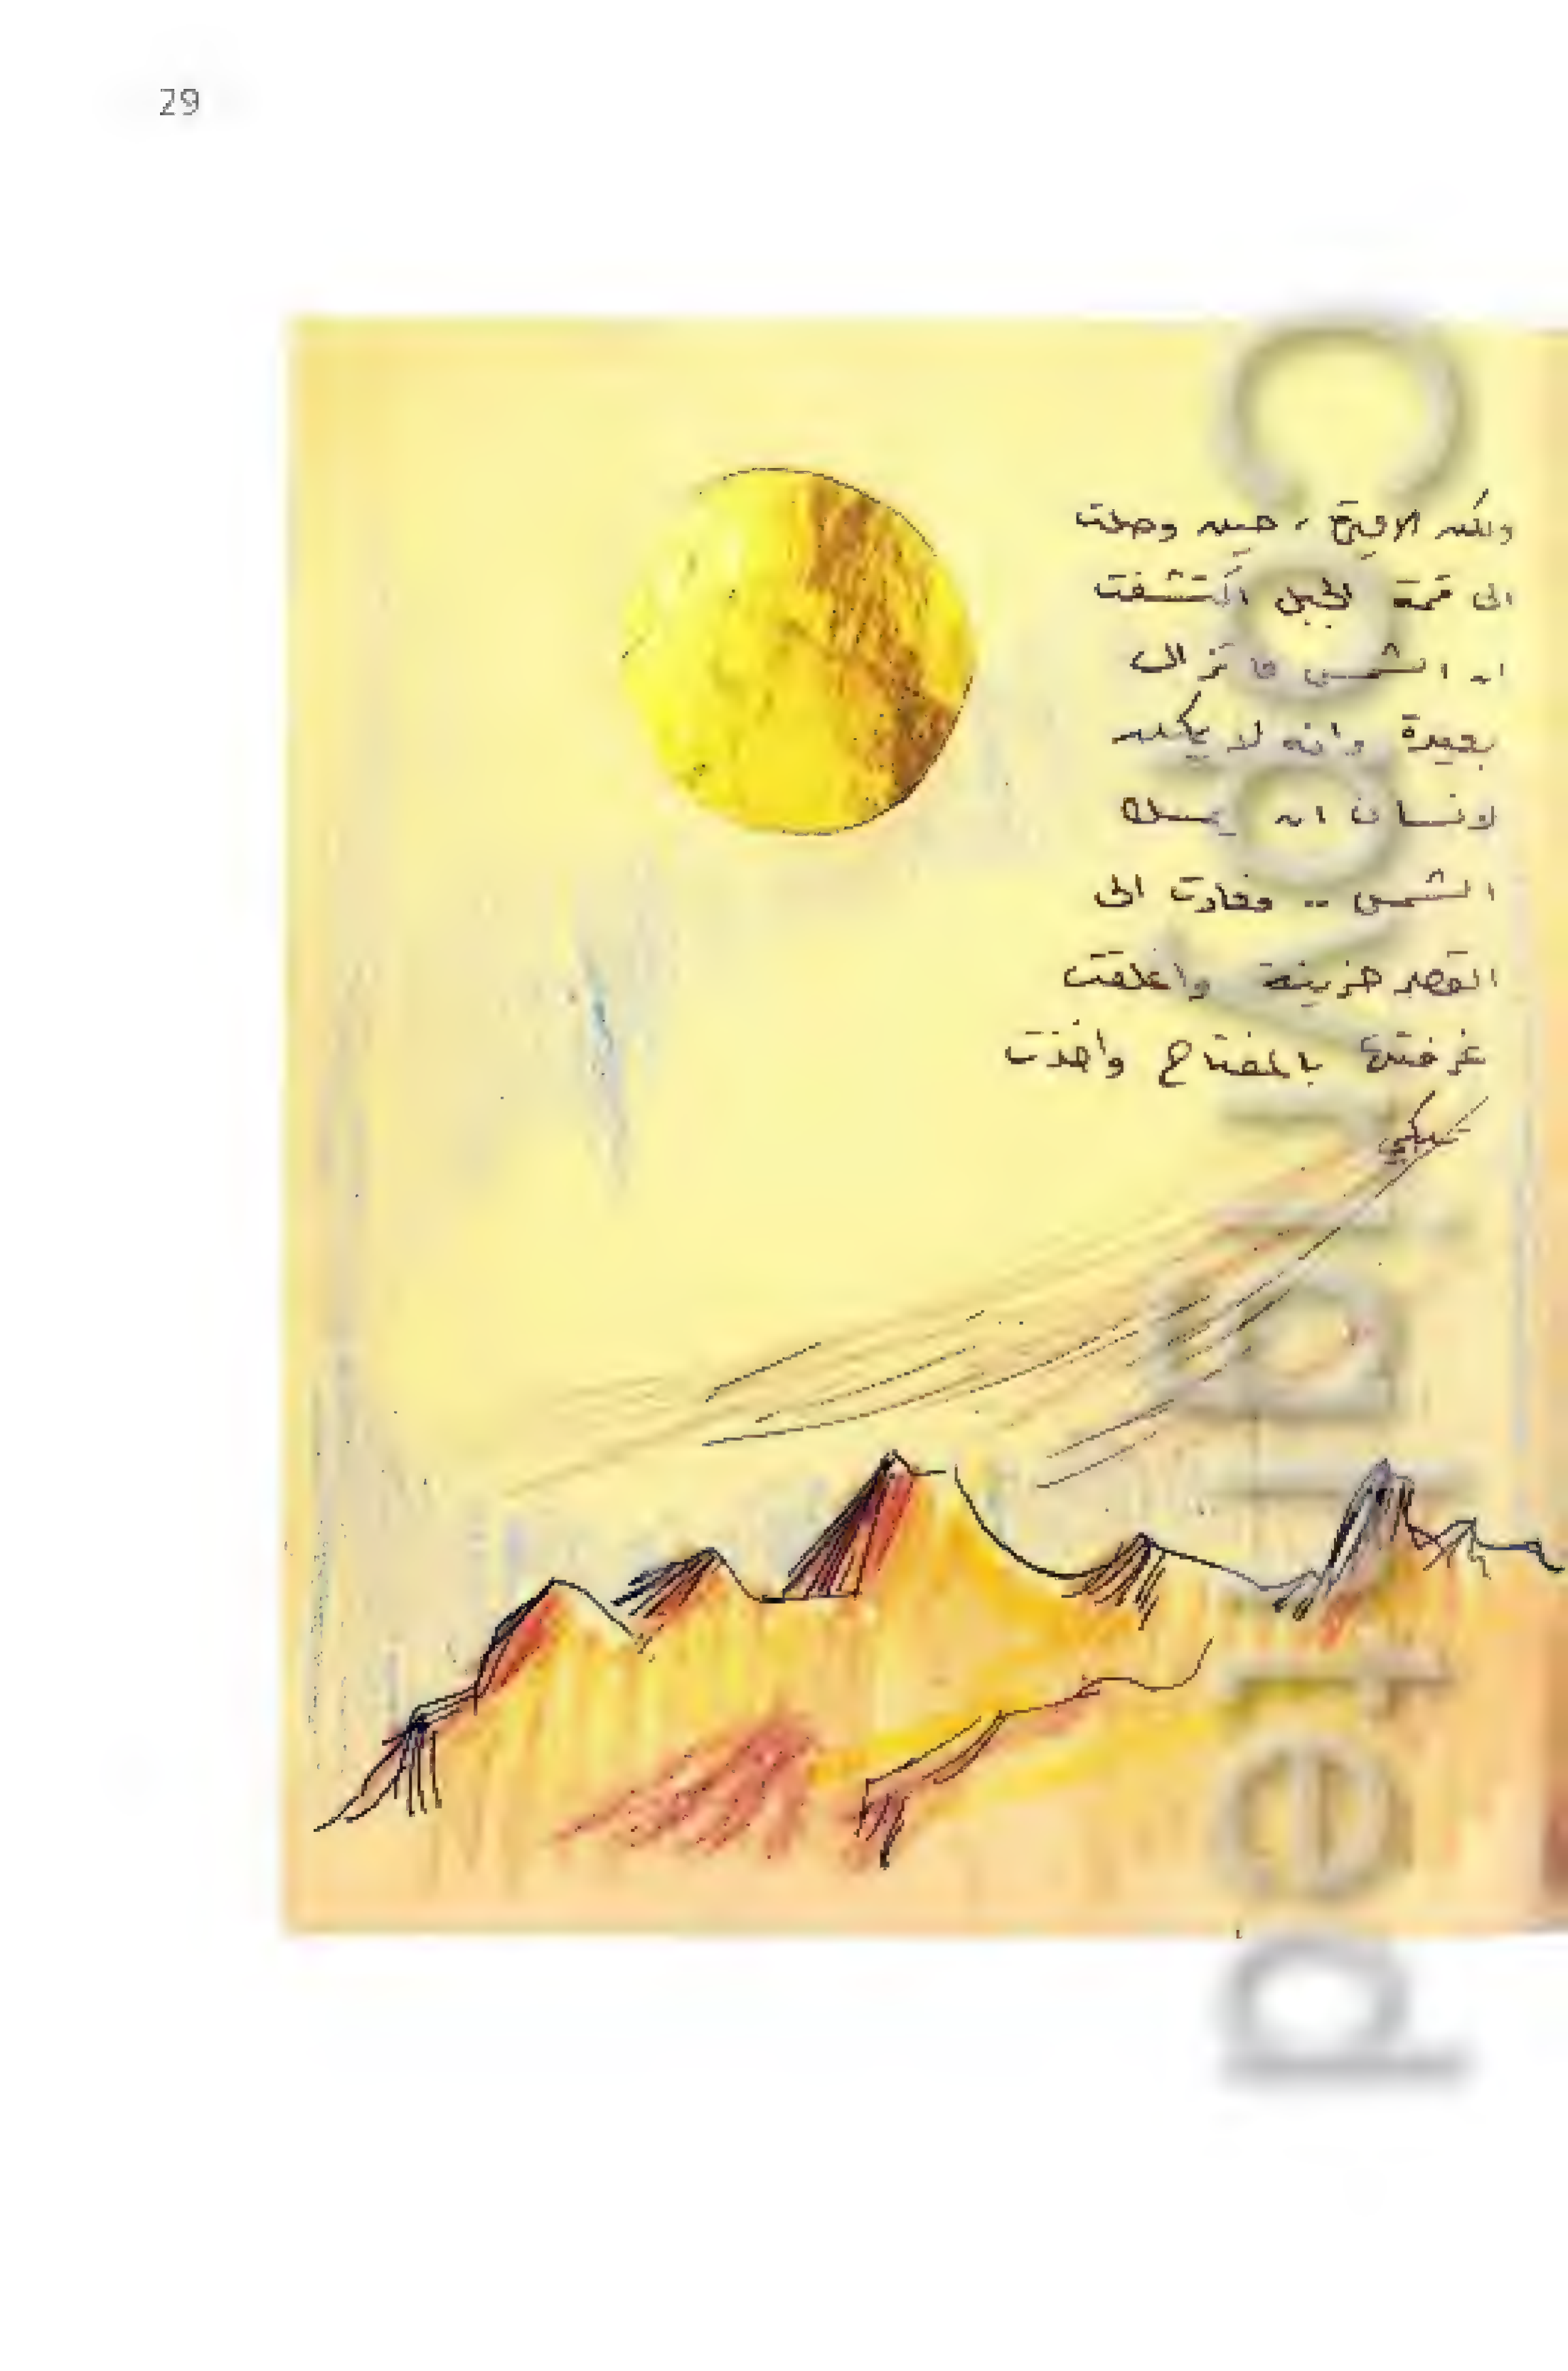 29
ولكن الاميرة، حين وصلت
الى قمة الجبل اكتشفت
ان الشمس ما تزال
بعيدة وانه لا يمكن
لانسان ان يمسك
الشمس .. فعادت الى
القصر حزينة واغلقت
غرفتها بالمفتاح واخذت
تبكي
Copyrighted